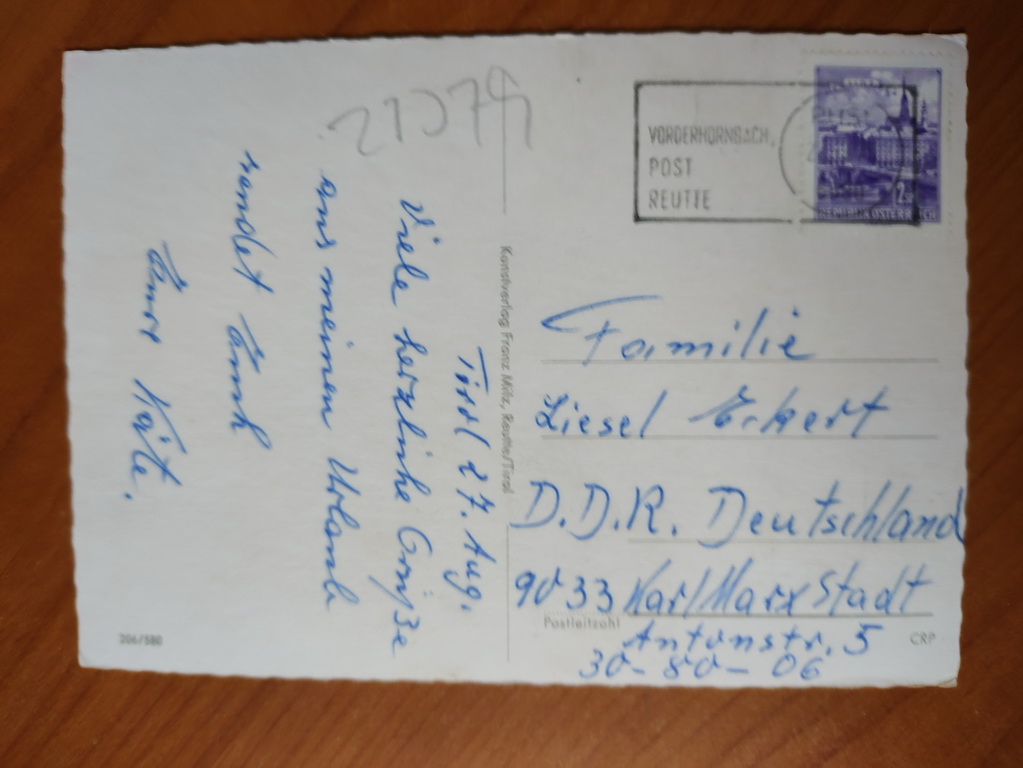 21074
Tirol 27. Aug.
Viele herzliche Grüße
aus meinem Urlaub
sendet Euch
Eure Käte.
Kunstverlag Franz Milz, Reutte/Tirol
VORDERHORNBACH,
POST
REUTTE
2
REPUBLIK ÖSTERREICH
Familie
Liesel Eckert
D.D.R. Deutschland
9033 Karl Marx Stadt
Postleitzahl
Antonstr. 5
30-80-06
206/580
CRP